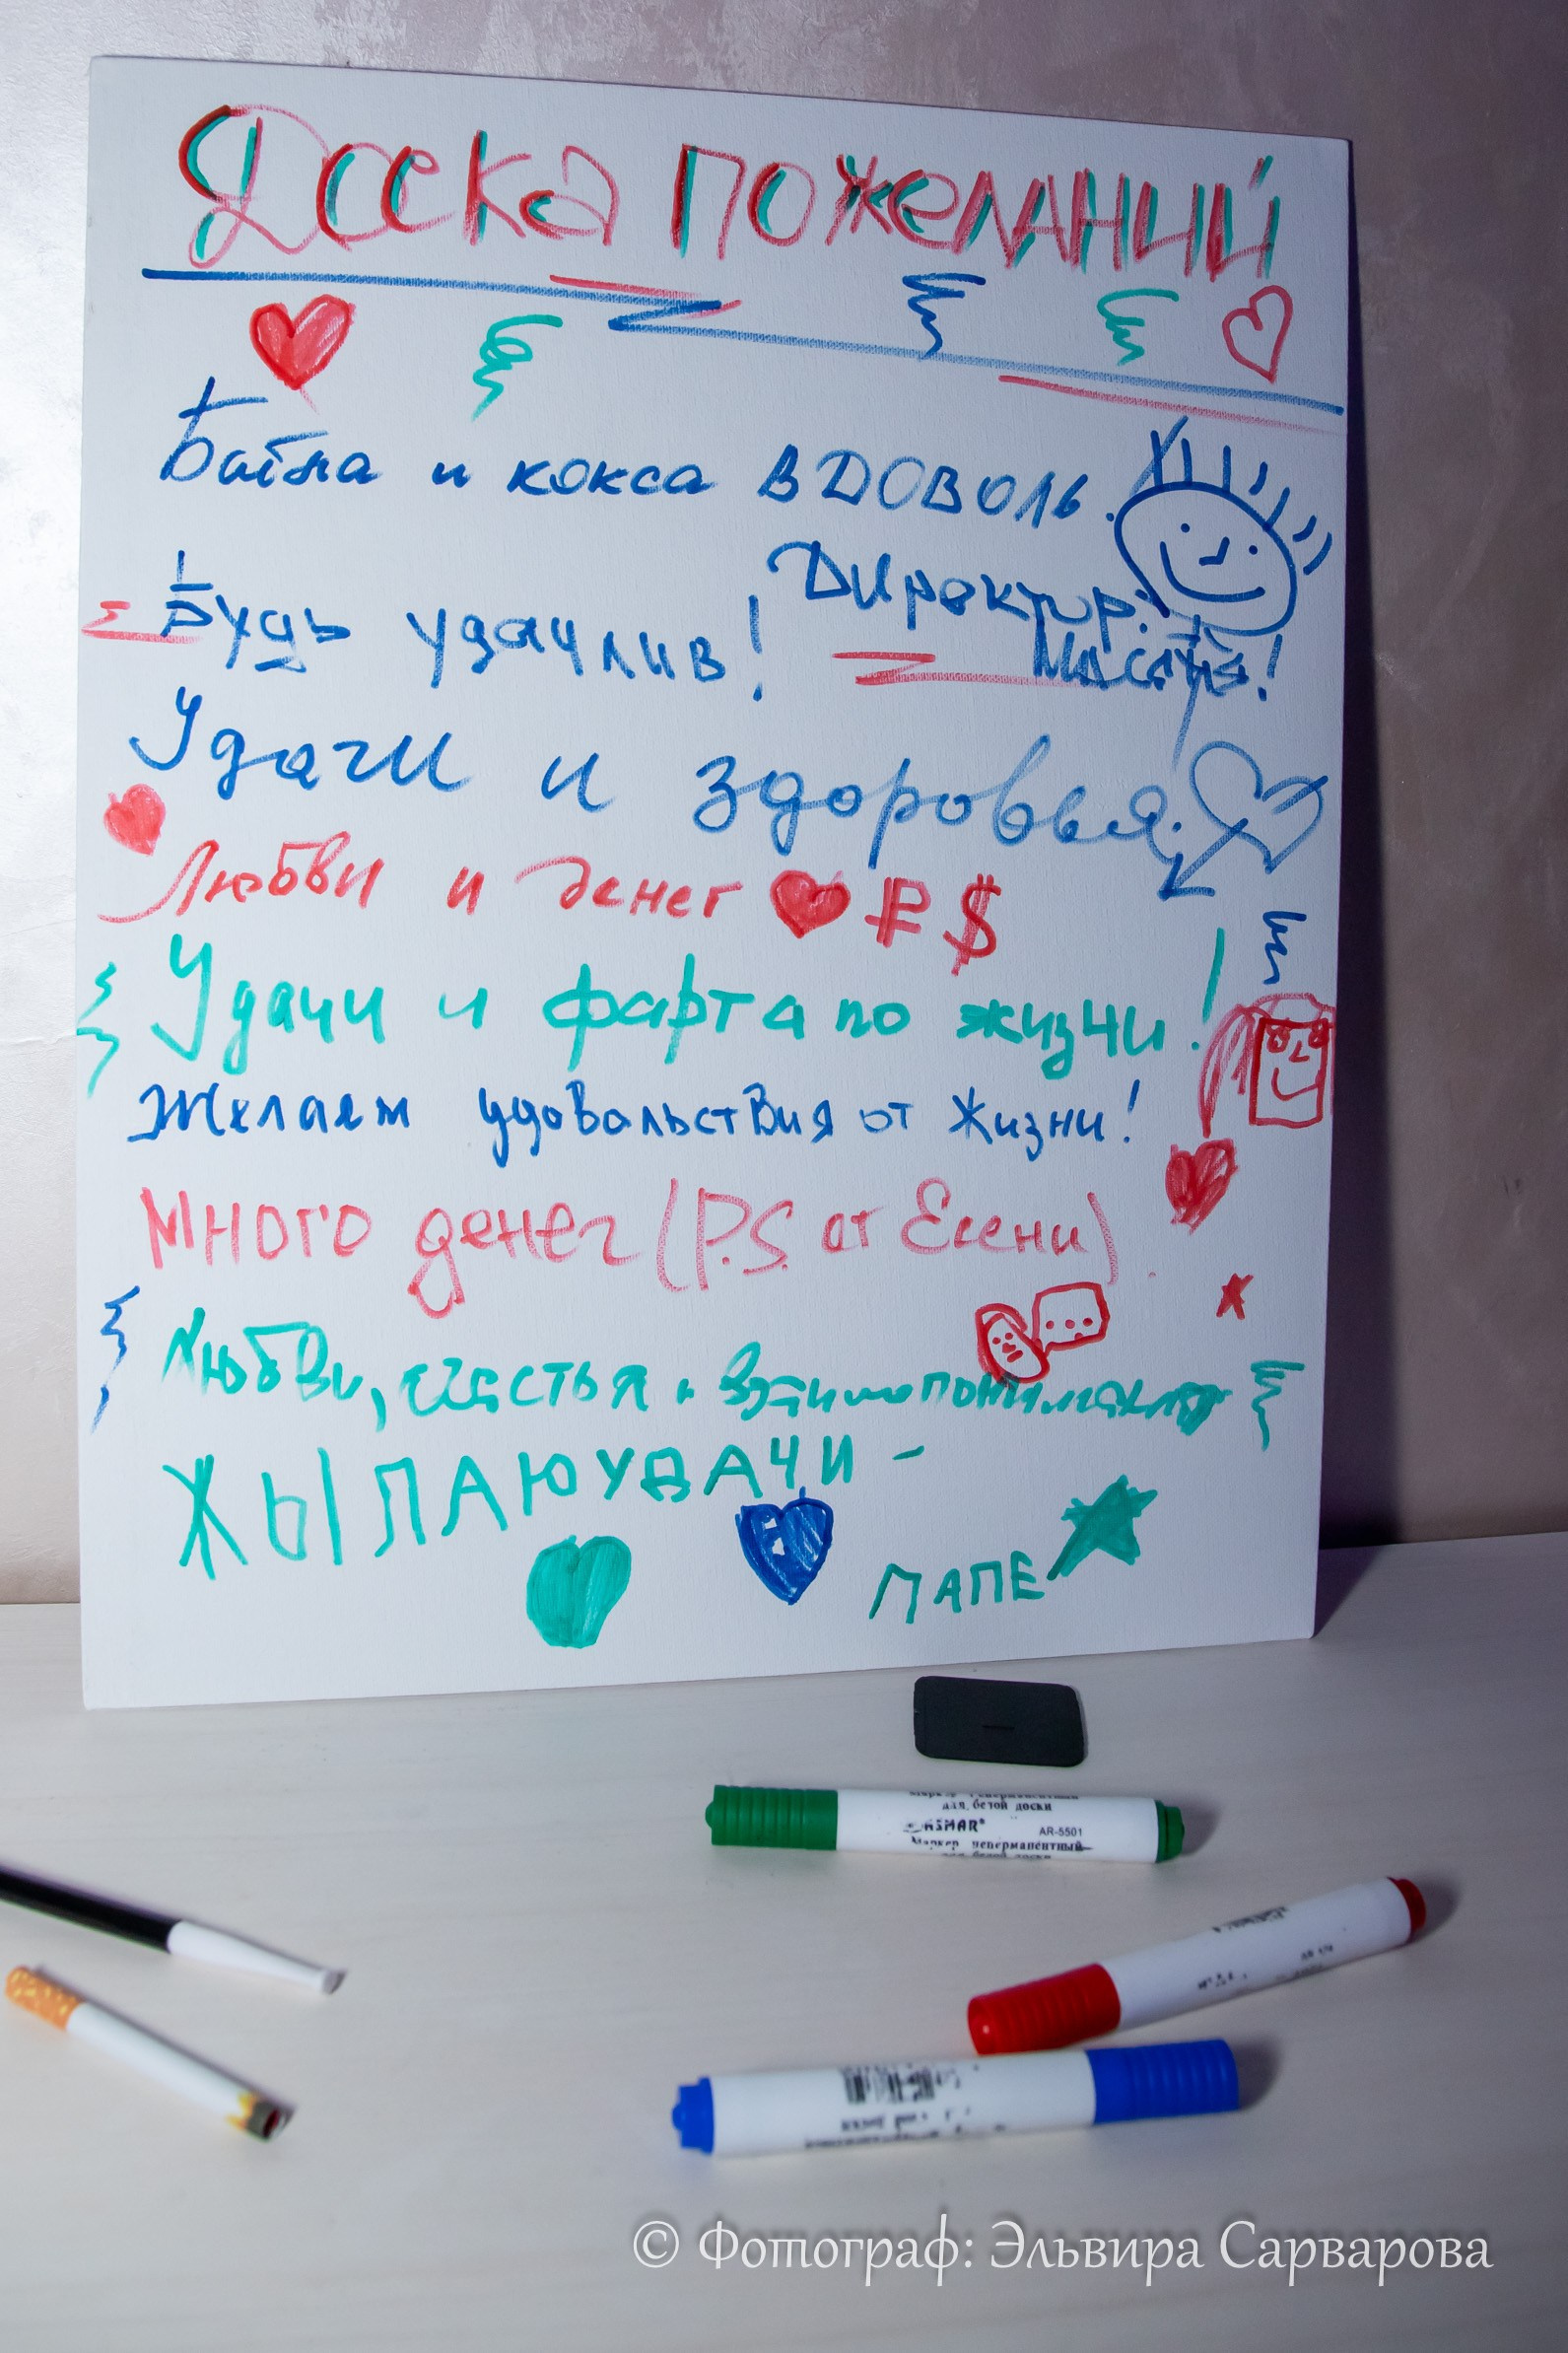 Доска пожеланий
и кокса вдоволь.
Будь удачлив!
Директор:
Удачи и здоровья
Любви и денег ₽ $
Удачи и фарта по жизни!
Желаем удовольствия от жизни!
Много денег (P.S. от Есени)
Любви, счастья и взаимопонимания
ЖЫЛАЮ УДАЧИ -
ПАПЕ
для белой доски
AR-5501
Маркер неперманентный
для белой доски
© Фотограф: Эльвира Сарварова